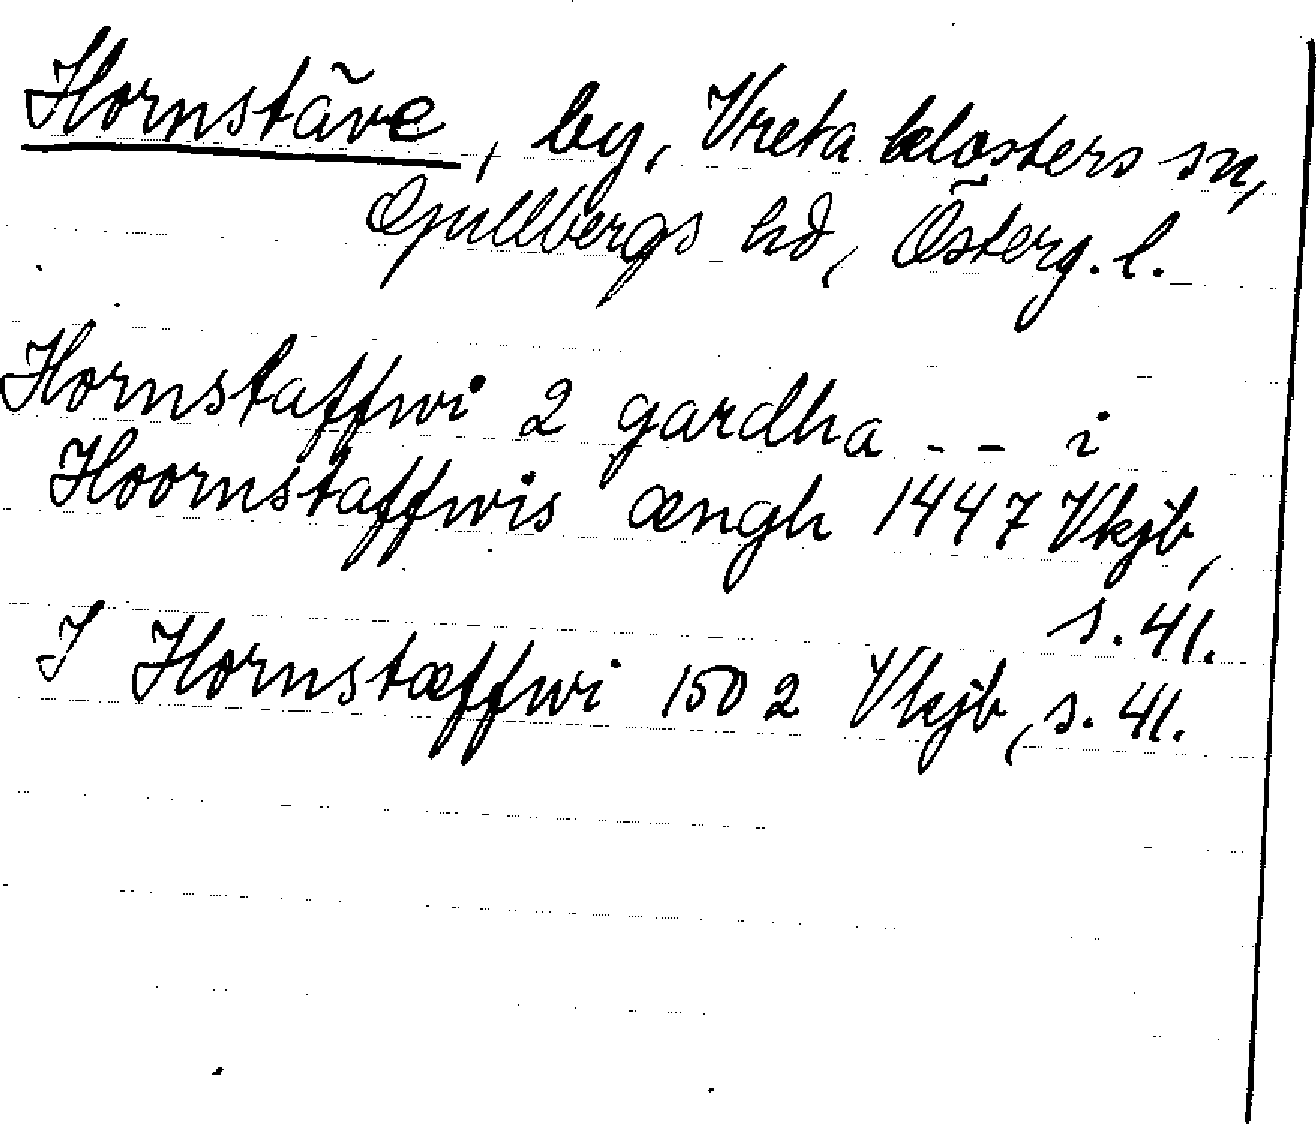 Hornstäve, by, Vreta klosters sn,
Gullbergs hd, Österg. l.
Hornstaffwi 2 gardha -- i
Hoornstaffwis ængh 1447 Vkjb,
s. 41.
J Hornstæffwi 1502 Vkjb, s. 41.